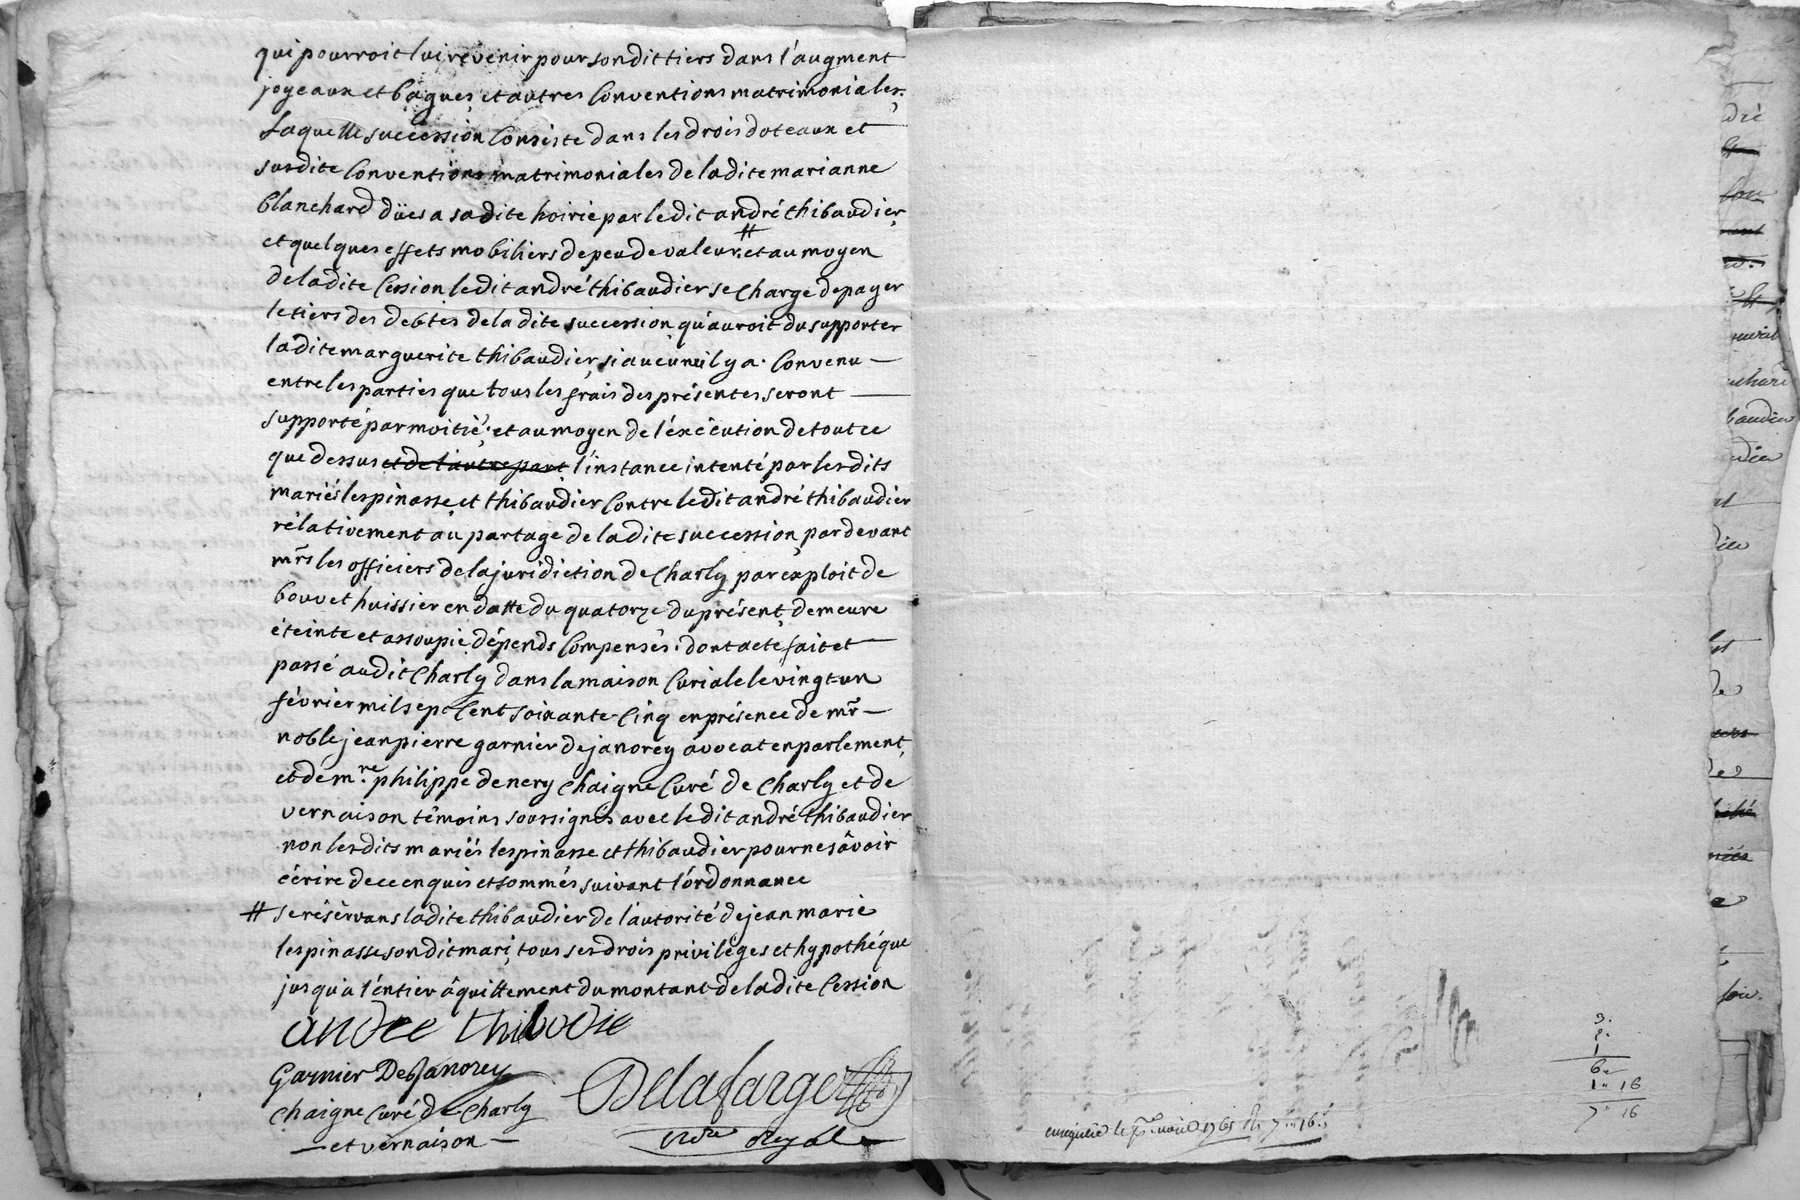 qui pourroit lui revenir pour son dit tiers dans l'augment
joyeaux et bagues, et autres conventions matrimoniales.
Laquelle succession consiste dans les drois doteaux et
susdite conventions matrimoniales de la dite marianne
blanchard düës a sa dite hoirie par le dit andré thibaudier,
et quelques effets mobiliers de peu de valeur. # et au moyen
de la dite cession le dit andré thibaudier se charge de payer
le tiers des debtes de la dite succession qu'auroit du supporter
la dite marguerite thibaudier, si aucune il y a. convenu
entre les parties que tous les frais des présentes seront
supporté par moitié; et au moyen de l'éxécution de tout ce
que dessus et de l'autre part l'instance intenté par les dits
mariés lespinasse et thibaudier contre le dit andré thibaudier
rélativement au partage de la dite succession, pardevant
mrs les officiers de la juridiction de charly par exploit de
bouvet huissier en datte du quatorze du présent, demeure
éteinte et assoupie dépends compensés. dont acte fait et
passé audit charly dans la maison curiale le vingt-un
février mil sept cent soixante-cinq en présence de mr
noble jean pierre garnier dejanorey avocat en parlement,
et de mre philippe de nery chaigne curé de charly et de
vernaison témoins soussignés avec le dit andré thibaudier
non les dits mariés lespinasse et thibaudier pour ne sâvoir
écrire de ce enquis et sommés suivant l'órdonnance
# se résérvans la dite thibaudier de l'autorité de jean marie
lespinasse son dit mari, tous ses drois privilèges et hypothéque
jusqu'a l'éntier âquittement du montant de la dite cession
andre thibodie
Garnier Desjanorey
Delafarge
chaigne curé de charly
et vernaison
nore Royal
3.
2.
1
6"
1" 16
7" 16